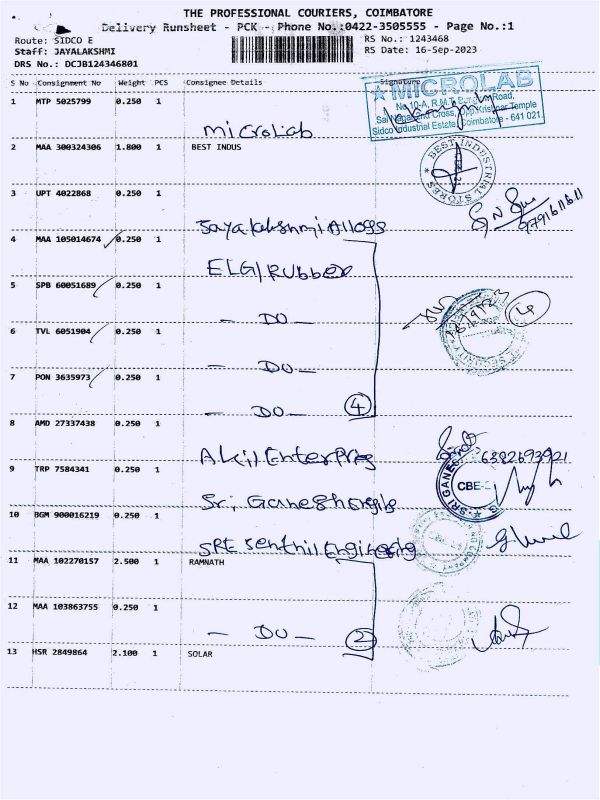 THE PROFESSIONAL COURIERS, COIMBATORE
Delivery Runsheet - PCK - Phone No.:0422-3505555 - Page No.:1
Route: SIDCO E
Staff: JAYALAKSHMI
DRS No.: DCJB124346801
RS No.: 1243468
RS Date: 16-Sep-2023
S No Consignment No Weight PCS Consignee Details Signature
1 MTP 5025799 0.250 1
MicroLab
MICROLAB
No.10-A, R.M.T. Road,
Sai Nagar 2nd Cross, Opp.Krishnar Temple
Sidco Industrial Estate, Coimbatore - 641 021.
2 MAA 300324306 1.800 1 BEST INDUS
BEST INDUSTRIAL STORES
3 UPT 4022868 0.250 1
Jayalakshmi Alloys
9791611611
4 MAA 105014674 0.250 1
ELGI Rubber
5 SPB 60051689 0.250 1
- DO -
6 TVL 6051904 0.250 1
- DO -
7 PON 3635973 0.250 1
- DO - 4
4
8 AMD 27337438 0.250 1
Akil Enterprises
6382693921
9 TRP 7584341 0.250 1
Sri Ganesh
SRI GANESH
CBE
10 BGM 900016219 0.250 1
SRE Senthil Engineering
11 MAA 102270157 2.500 1 RAMNATH
12 MAA 103863755 0.250 1
- DO - 2
13 HSR 2849864 2.100 1 SOLAR